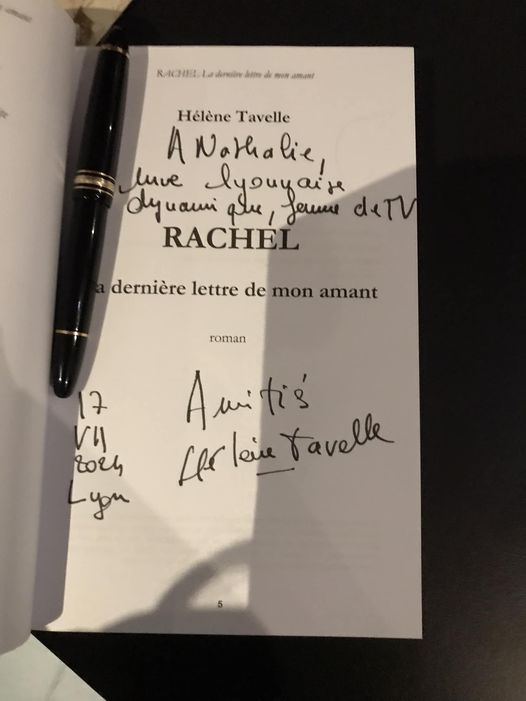 RACHEL La dernière lettre de mon amant
Hélène Tavelle
A Nathalie,
une lyonnaise
dynamique, femme de TV
RACHEL
a dernière lettre de mon amant
roman
Amitiés
Hélène Tavelle
17
VII
2024
Lyon
5